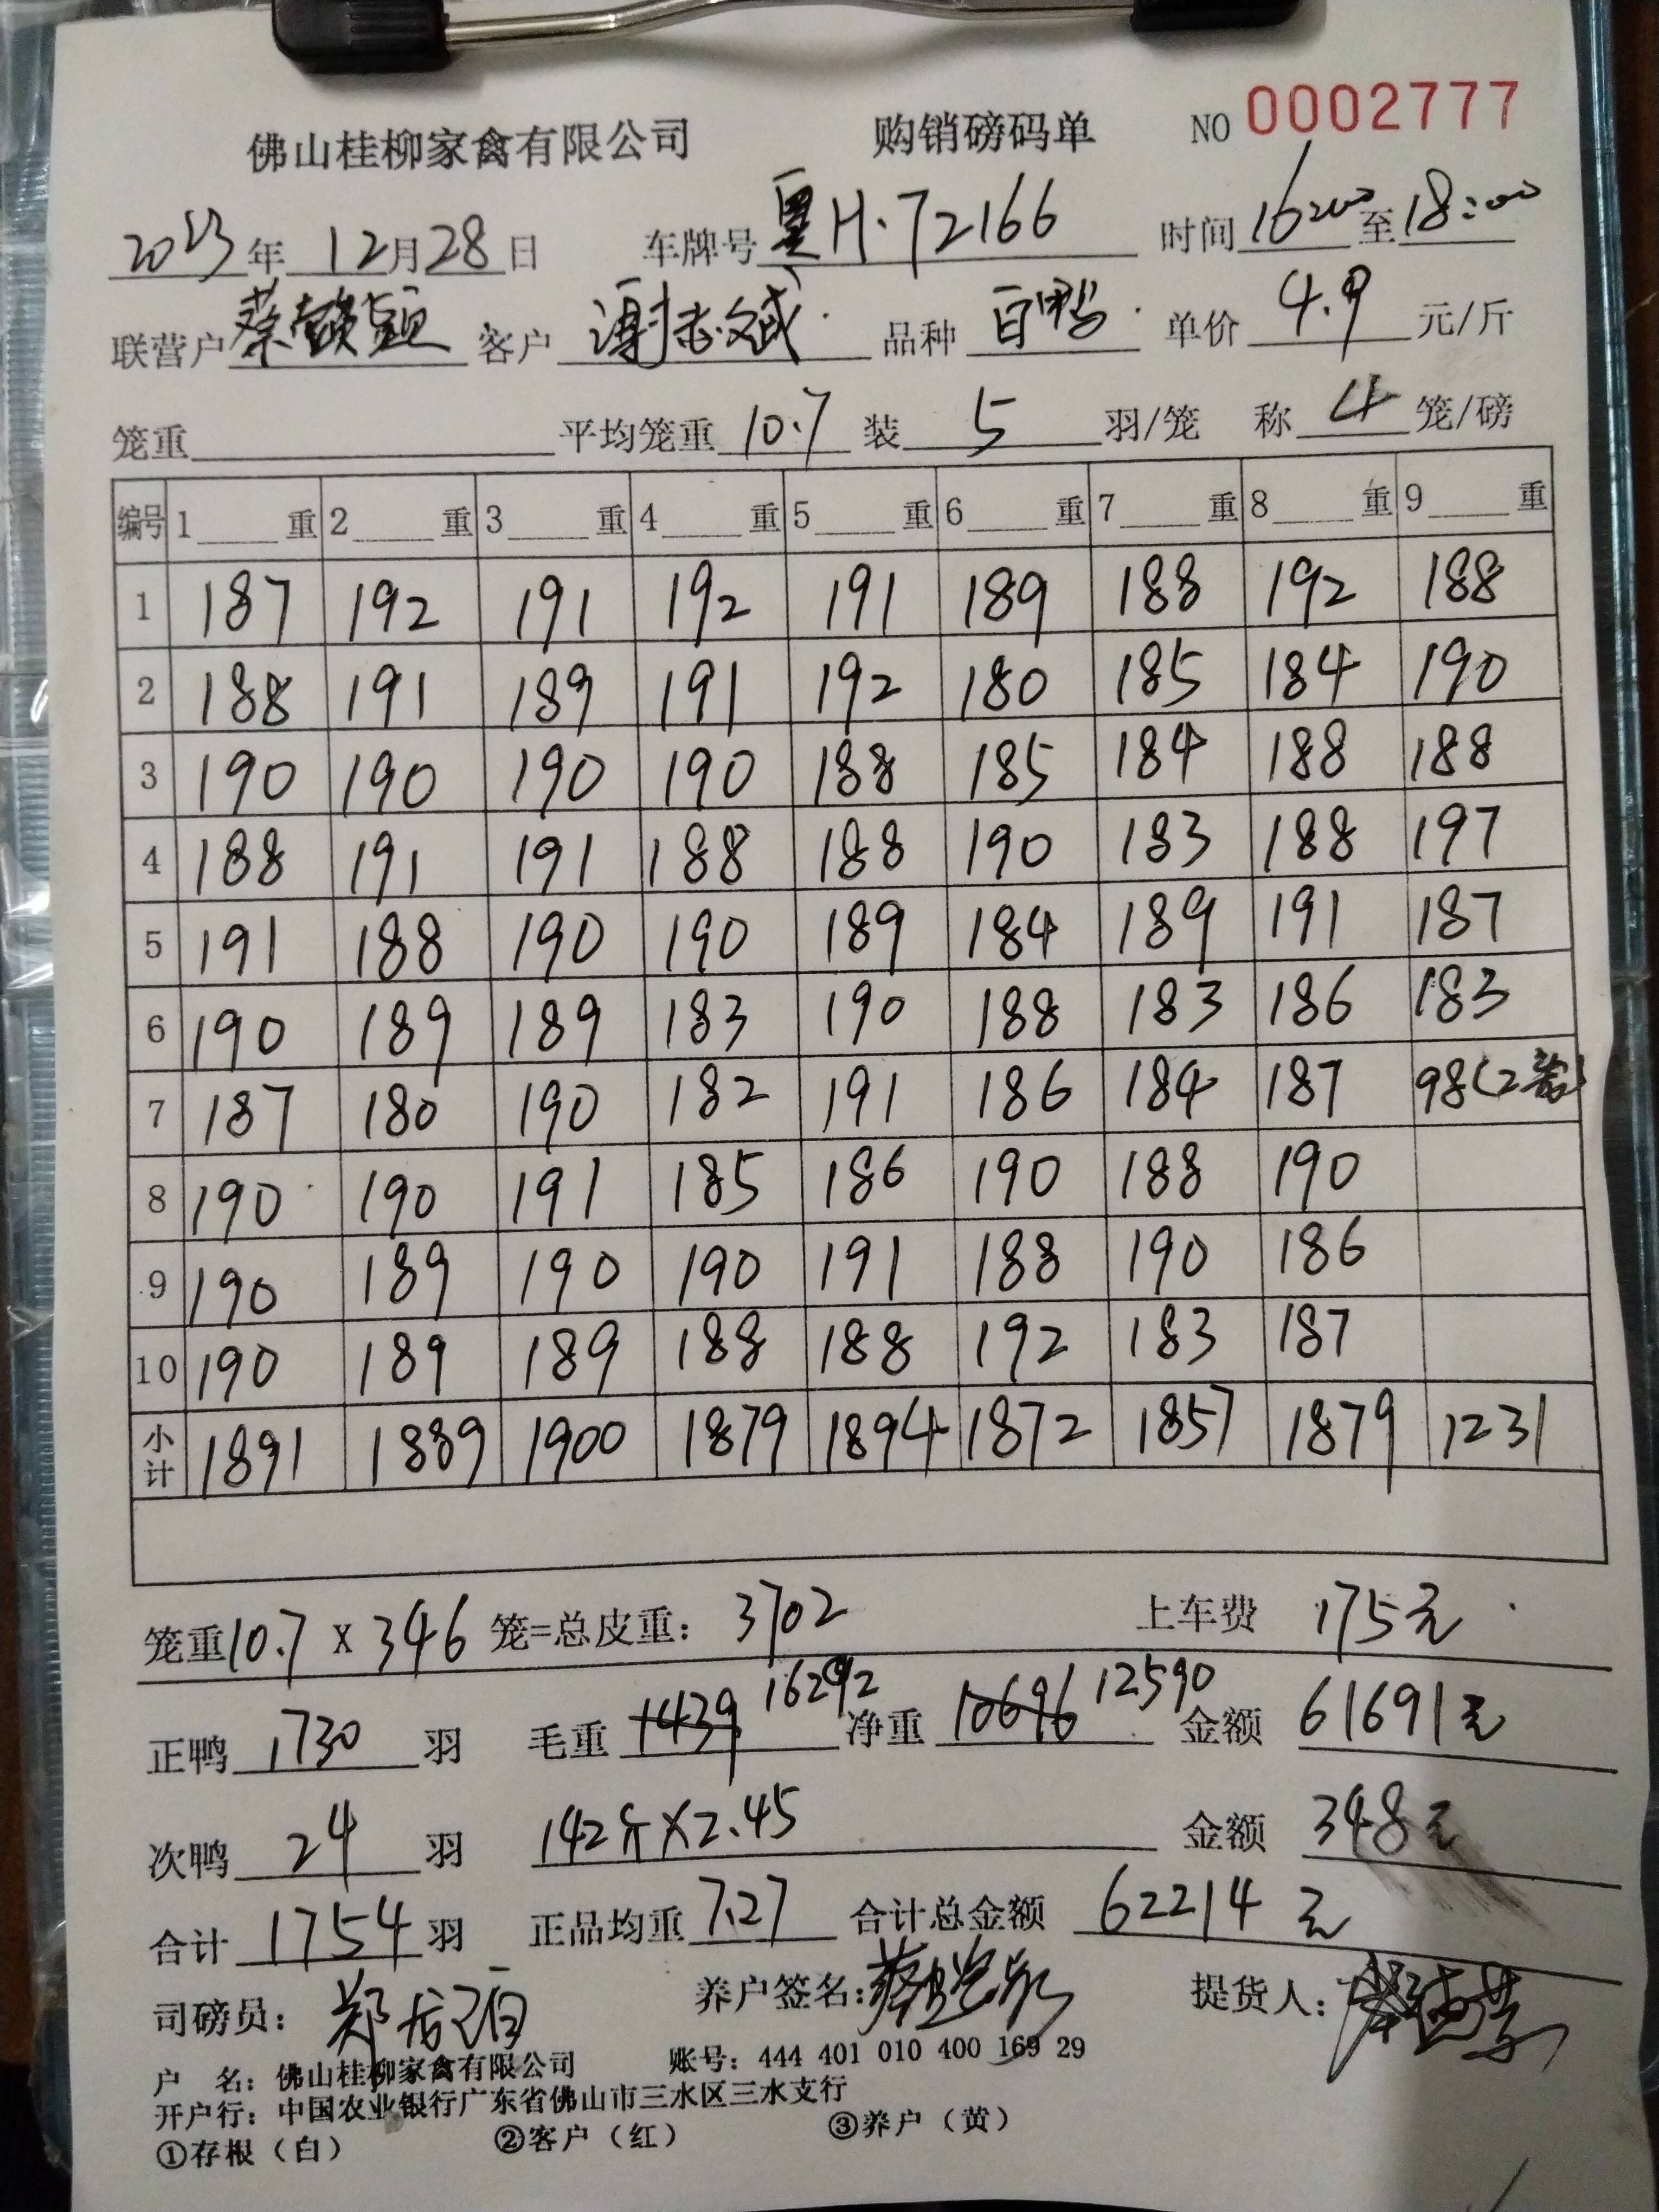 佛山桂柳家禽有限公司 购销磅码单 NO 0002777
2023年 12月28日 车牌号 粤H·72166 时间 16:00 至 18:00
联营户 蔡 客户 谢志斌 品种 白鸭 单价 4.9 元/斤
笼重 平均笼重 10.7 装 5 羽/笼 称 4 笼/磅
编号 1 重 2 重 3 重 4 重 5 重 6 重 7 重 8 重 9 重
1 187 192 191 192 191 189 188 192 188
2 188 191 189 191 192 180 185 184 190
3 190 190 190 190 188 185 184 188 188
4 188 191 191 188 188 190 183 188 197
5 191 188 190 190 189 184 189 191 187
6 190 189 189 183 190 188 183 186 183
7 187 180 190 182 191 186 184 187 98(2
8 190 190 191 185 186 190 188 190
9 190 189 190 190 191 188 190 186
10 190 189 189 188 188 192 183 187
小计 1891 1889 1900 1879 1894 1872 1857 1879 1231
笼重10.7 X 346 笼=总皮重: 3702 上车费 175元
正鸭 1730 羽 毛重 1439 16292 净重 10696 12590 金额 61691元
次鸭 24 羽 142斤X2.45 金额 348元
合计 1754 羽 正品均重 7.27 合计总金额 62214 元
司磅员: 郑 养户签名: 提货人:
户 名: 佛山桂柳家禽有限公司 账号: 444 401 010 400 169 29
开户行: 中国农业银行广东省佛山市三水区三水支行
①存根(白) ②客户(红) ③养户(黄)